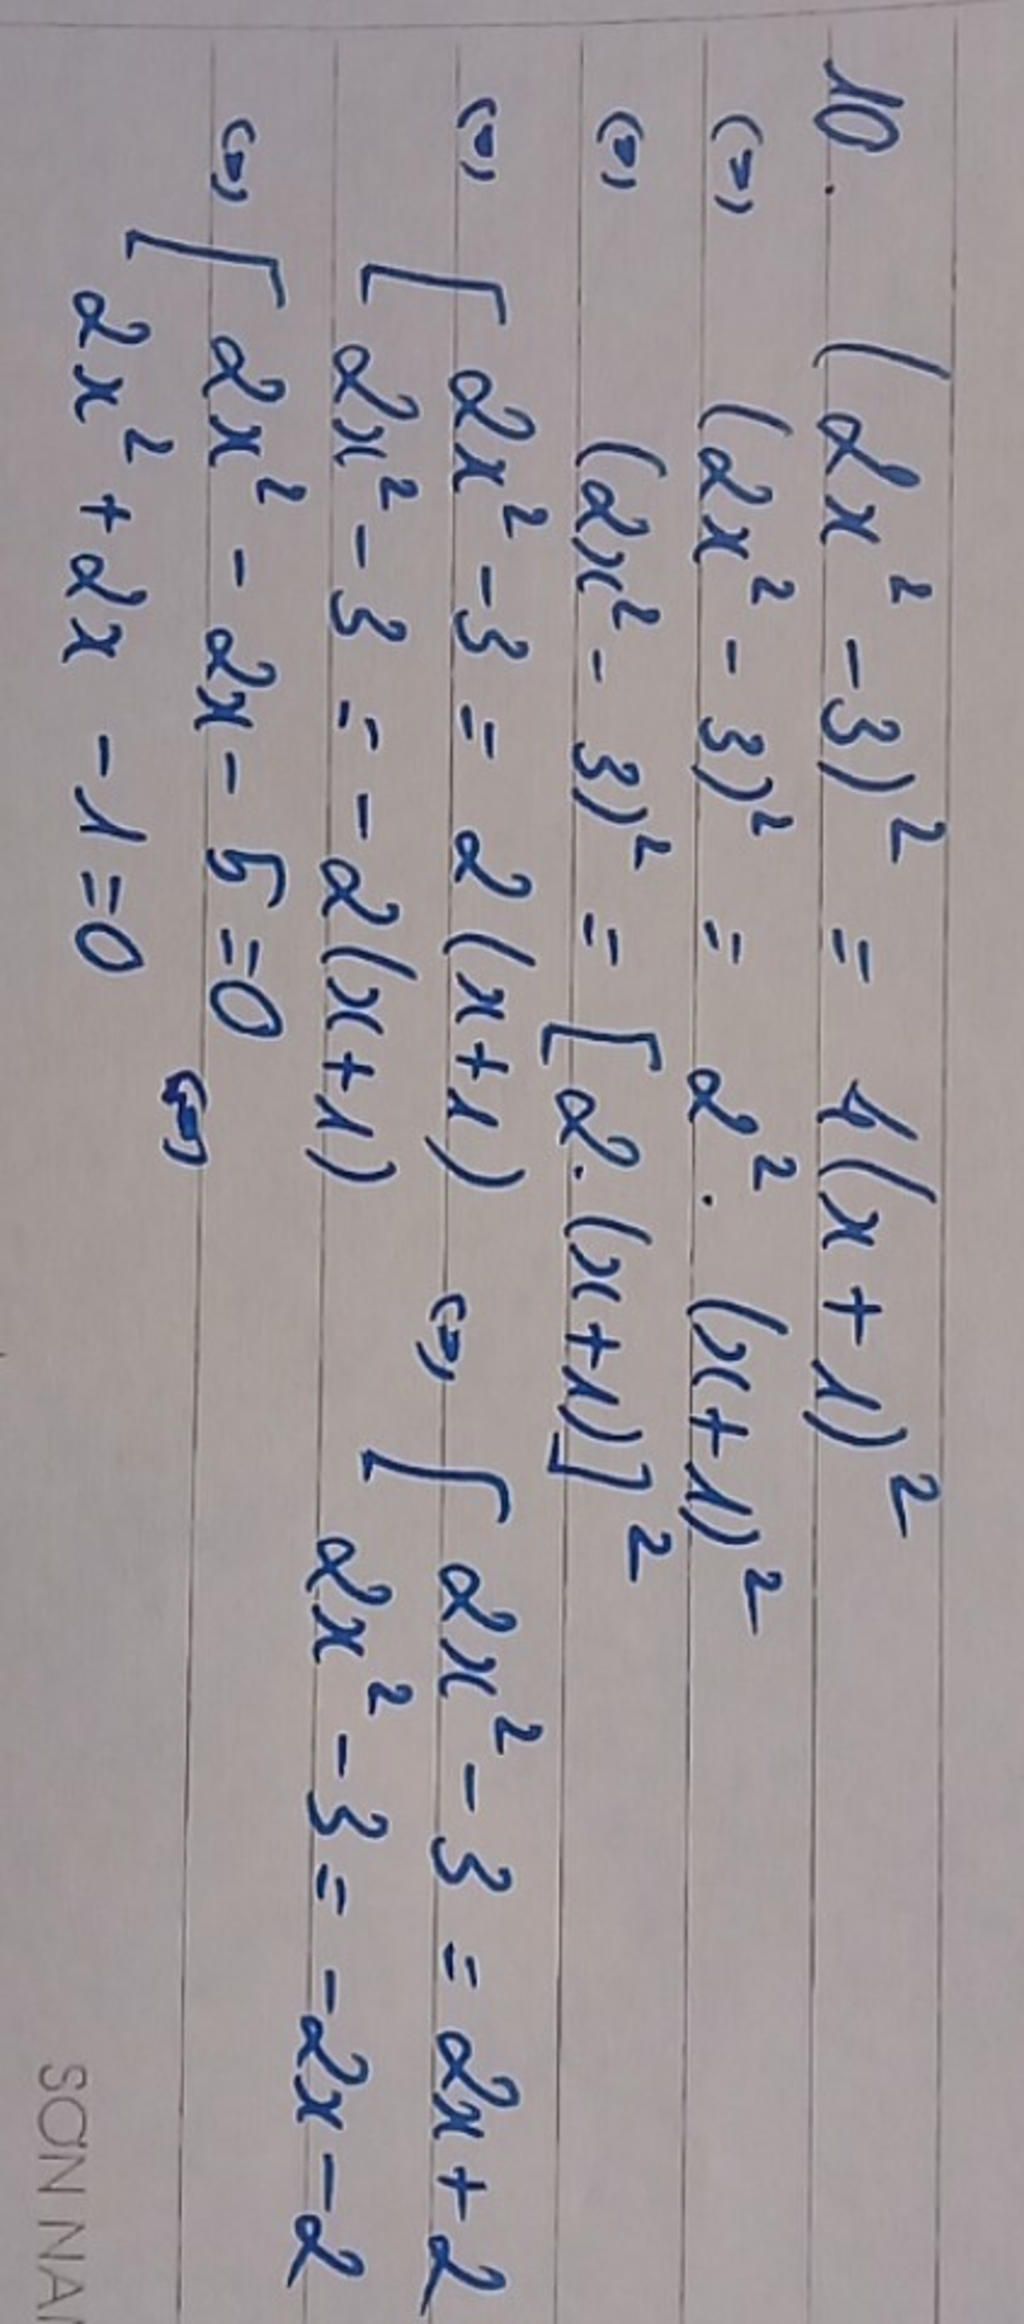 10. (2x² - 3)² = 4(x + 1)²
⇔ (2x² - 3)² = 2² . (x + 1)²
⇔ (2x² - 3)² = [2. (x + 1)]²
⇔ [ 2x² - 3 = 2(x + 1) ⇔ [ 2x² - 3 = 2x + 2
2x² - 3 = - 2(x + 1) 2x² - 3 = -2x - 2
⇔ [ 2x² - 2x - 5 = 0 ⇔
2x² + 2x - 1 = 0
SƠN NA